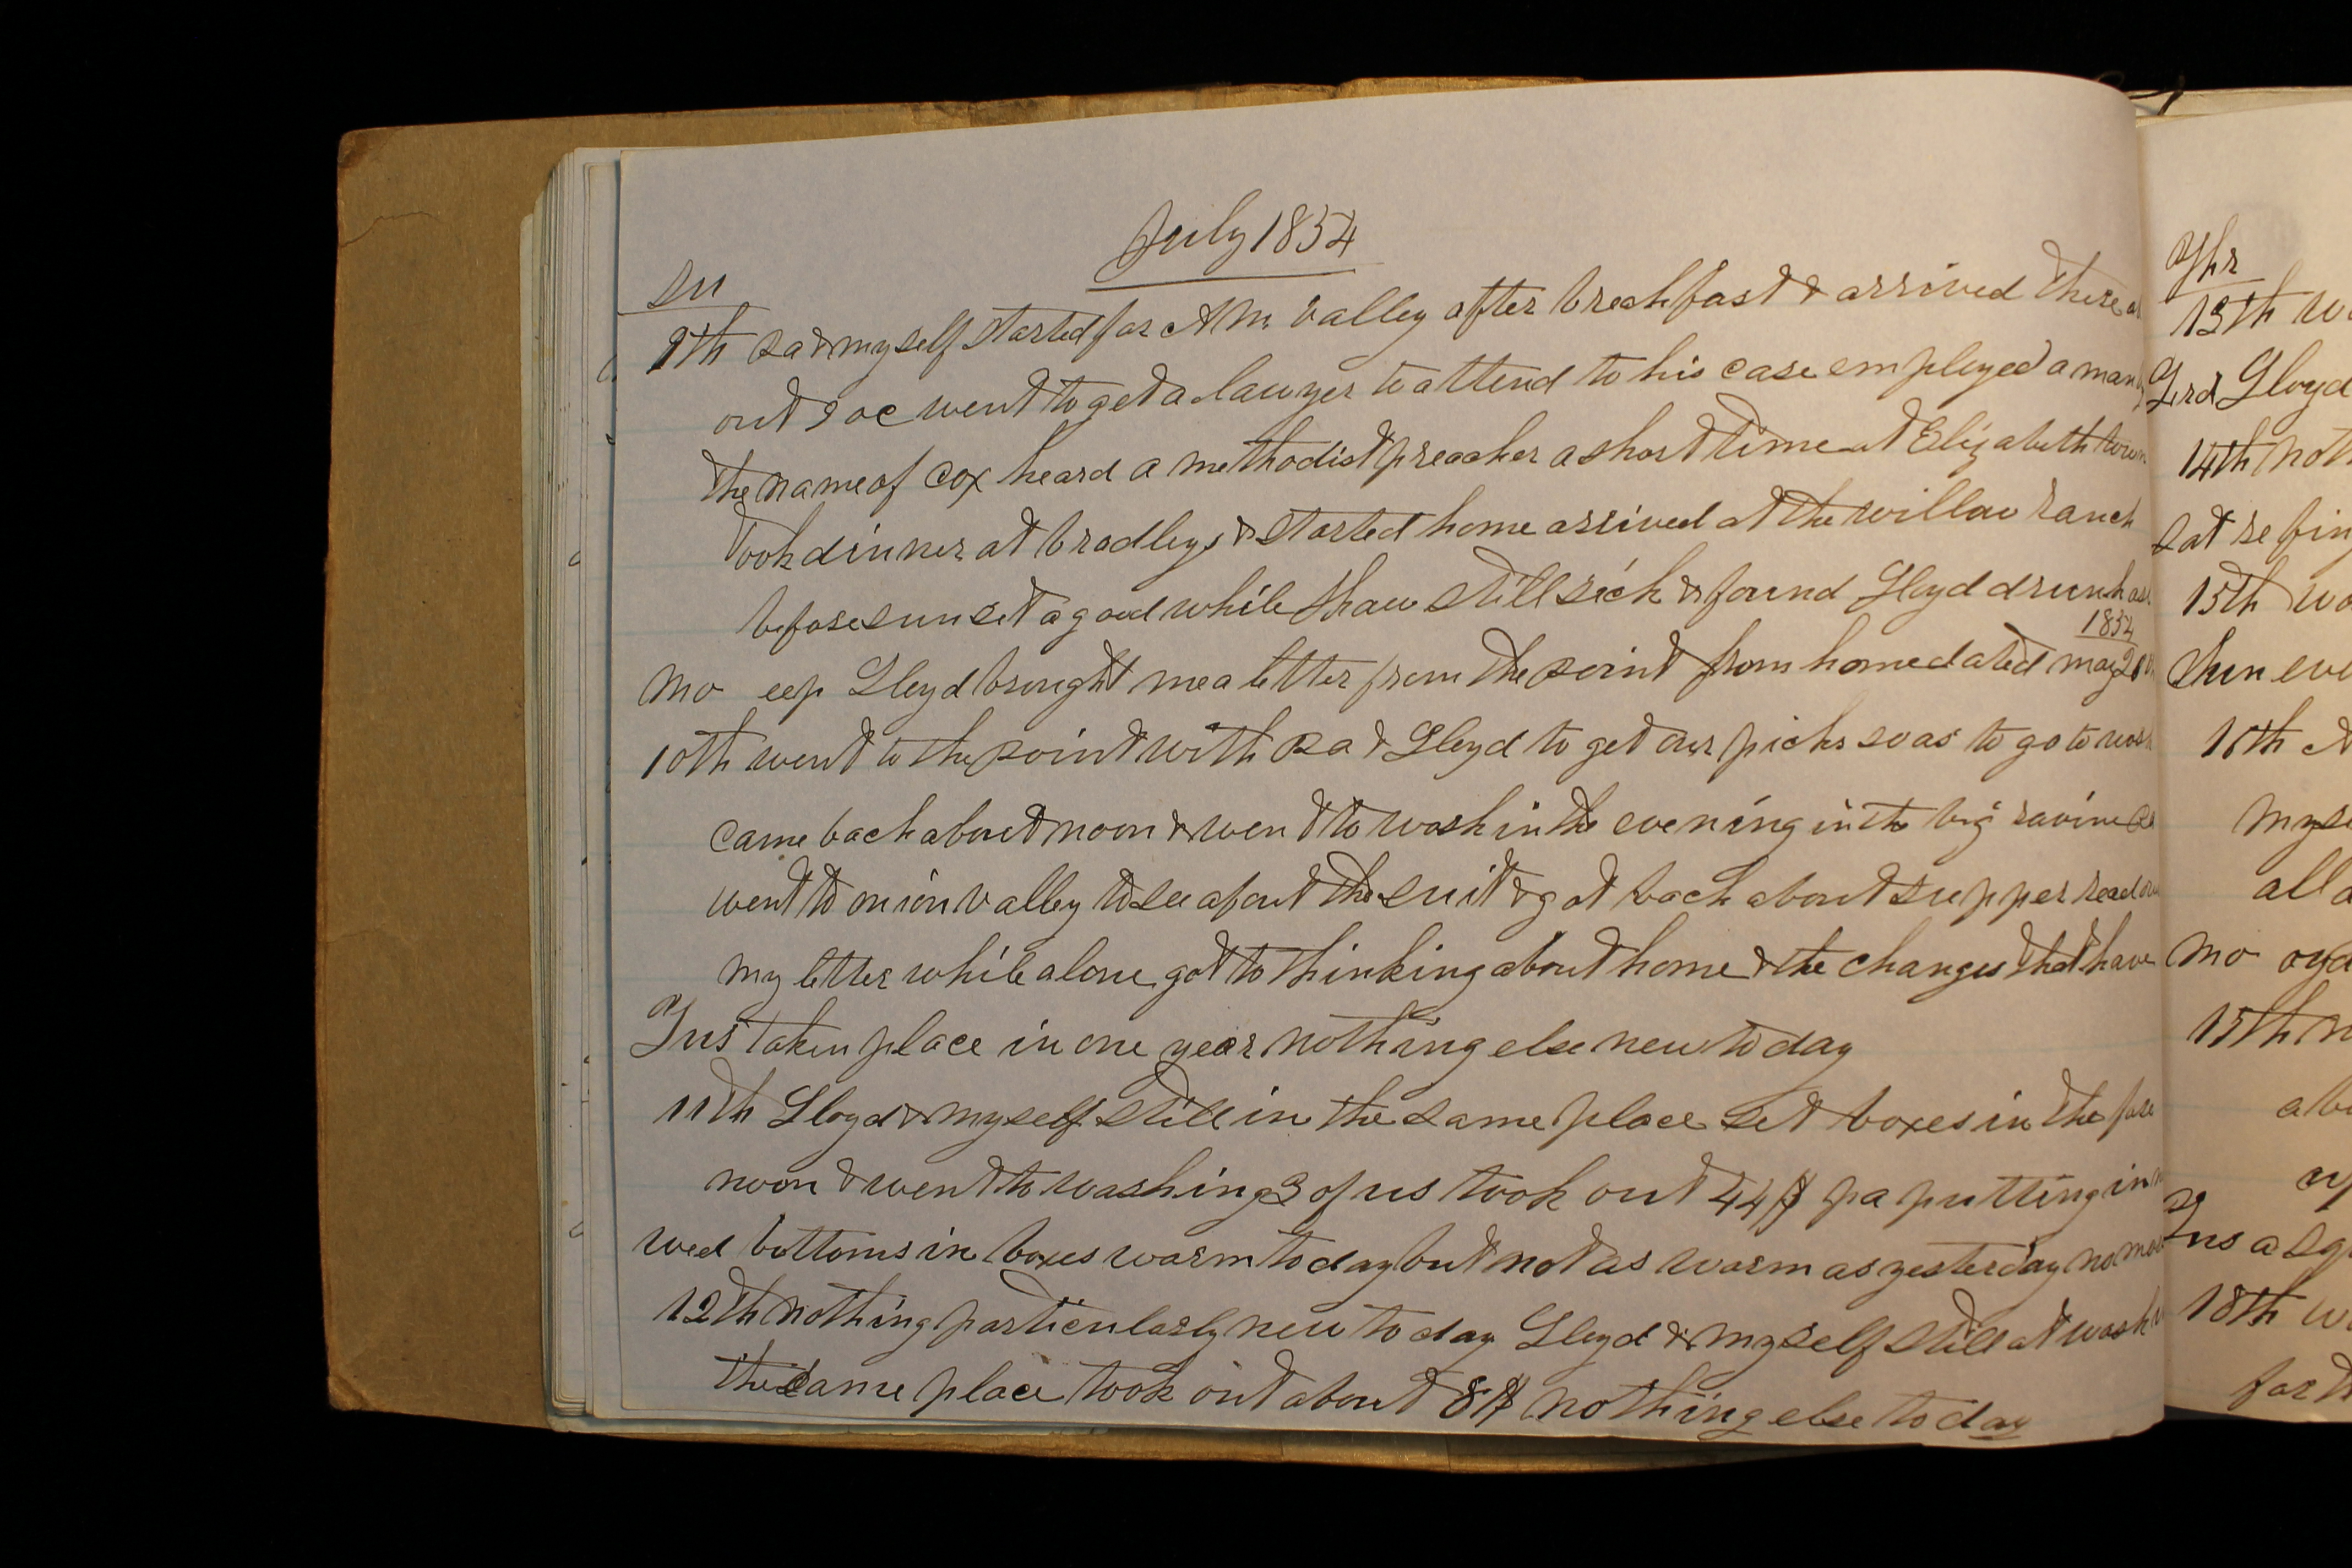 July 1854
Su
9th Ra & myself started for Am valley after breakfast & arrived there
out 9 oc went to get a lawyer to attend to his case employed a man by
the name of Cox heard a methodist preacher a short time at Elizabeth town
took dinner at bradleys & started home arrived at the willow ranch
before sunset a good while Shaw still sick & found Lloyd drunk as
1854
Mo eep Lloyd brought me a letter from the point from home dated may
10th went to the point with Ra & Lloyd to get our picks so as to go to wash
came back about noon & went to wash in the evening in the big ravine Ra
went to onion valley to see about the suit & got back about supper read over
my letter while alone got to thinking about home & the changes that have
Tus taken place in one year nothing else new today
11th Lloyd & myself still in the same place set boxes in the fore
noon & went to washing 3 of us took out 44$ pa putting in
wed bottoms in boxes warm today but not as warm as yesterday no more
12th nothing particularly new to day Lloyd & myself still at wash
the same place took out about 8$ nothing else to day
Thr
13th
Frd Lloyd
14th
Sat
15th
Sun
16th
Mo
Tus
18th